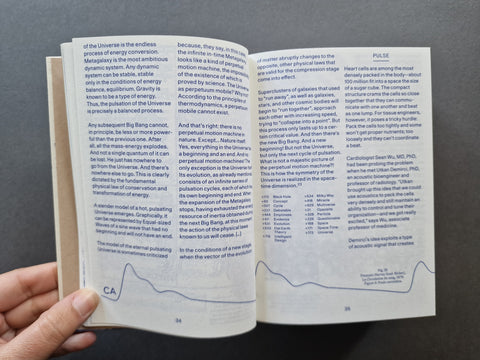 of the Universe is the endless
process of energy conversion.
Metagalaxy is the most ambitious
dynamic system. Any dynamic
system can be stable, stable
only in the conditions of energy
balance, equilibrium. Gravity is
known to be a type of energy.
Thus, the pulsation of the Universe
is precisely a balanced process.
Any subsequent Big Bang cannot,
in principle, be less or more power-
ful than the previous one. After
all, all the mass-energy explodes.
And not a single quantum of it can
be lost. He just has nowhere to
go from the Universe. And there's
nowhere else to go. This is clearly
dictated by the fundamental
physical law of conservation and
transformation of energy.
A slender model of a hot, pulsating
Universe emerges. Graphically, it
can be represented by equal-sized
waves of a sine wave that had no
beginning and will not have an end.
The model of the eternal pulsating
Universe is sometimes criticized
CA
because, they say, in this case,
the infinite-in-time Metagalaxy
looks like a kind of perpetual
motion machine, the impossibility
of the existence of which is
proved by science. The Universe
as perpetuum mobile? Why not?
According to the principles of
thermodynamics, a perpetual
mobile cannot exist.
And that's right: there is no
perpetual motion machine in
nature. Except... Nature itself.
Yes, everything in the Universe has
a beginning and an end. And no
perpetual motion machine? Is
only exception is the Universe
Its evolution, as already mentioned
consists of an infinite series of
pulsation cycles, each of which has
its own beginning and end. When
the expansion of the Metagalaxy
stops, having exhausted the entire
resource of inertia obtained during
the next Big Bang, at this moment
the action of the physical laws
known to us will cease. (...)
In the conditions of a new stage,
when the vector of the evolution
34
of matter abruptly changes to the
opposite, other physical laws that
are valid for the compression stage
come into effect.
Superclusters of galaxies that used
to "run away", as well as galaxies,
stars, and other cosmic bodies will
begin to "run together", approach
each other with increasing speed,
trying to "collapse into a point". But
this process only lasts up to a cer-
tain critical value. And then there's
the new Big Bang. And a new
beginning! But not the Universe,
but only the next cycle of pulsation.
What is not a majestic picture of
the perpetual motion machine?!
This is how the symmetry of the
Universe is realized in the space-
time dimension.
Black Hole
Concept
Cycle
Demolish
Emptiness
Evidence
Evolution
Flat Earth
Theory
Intelligent
Design
Milky Way
Miracle
Multiverse
Opposite
Particle
Coordinate
Space
Space-Time
Universe
PULSE
Heart cells are among the most
densely packed in the body–about
100 million fit into a space the size
of a sugar cube. The compact
structure crams the cells so close
together that they can commu-
nicate with one another and beat
as one lump. For tissue engineers,
however, it poses a tricky hurdle:
Pack the cells too tightly and some
won't get proper nutrients; too
loosely and they can't coordinate
a beat.
Cardiologist Sean Wu, MD, PhD,
had been probing the problem
when he met Utkan Demirci, PhD,
an acoustic bioengineer and
professor of radiology. "Utkan
brought up this idea that we could
use acoustics to pack the cells
very densely and still maintain an
ability to control and tune their
organization—and we got really
excited," says Wu, associate
professor of medicine.
Demirci's idea exploits a type
of acoustic signal that creates
35